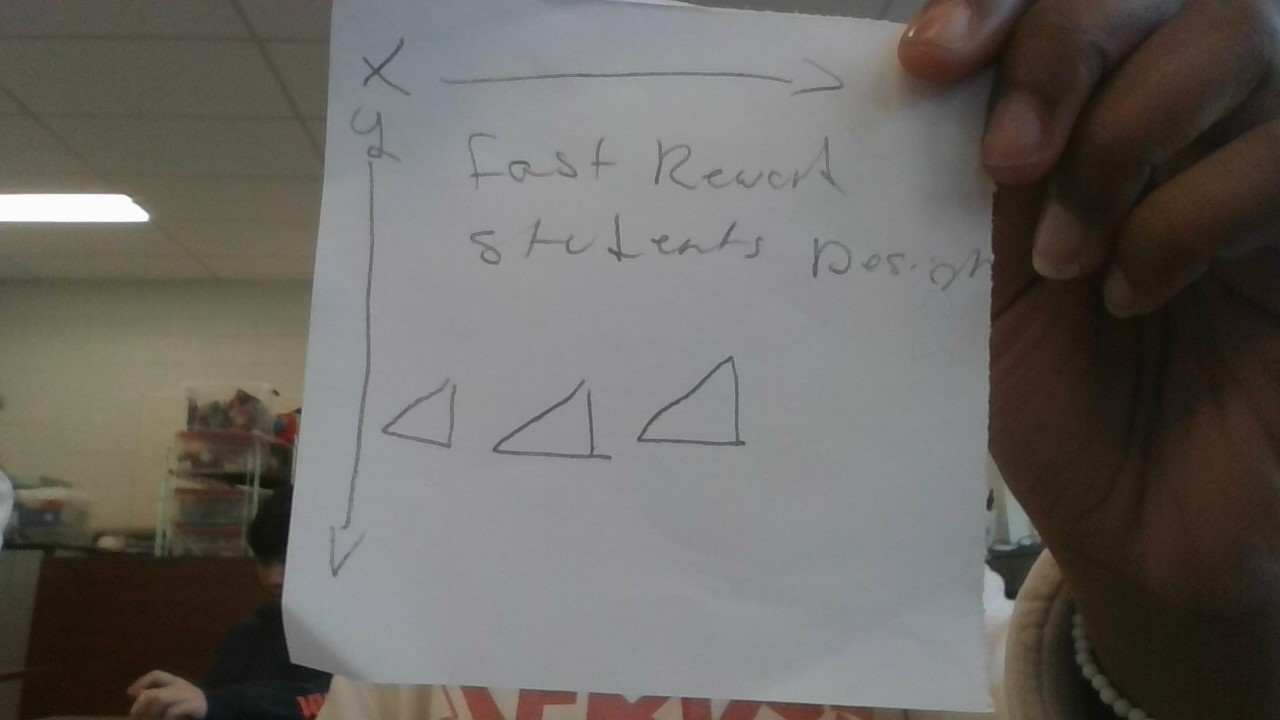 X
y
fast Reword
students Design